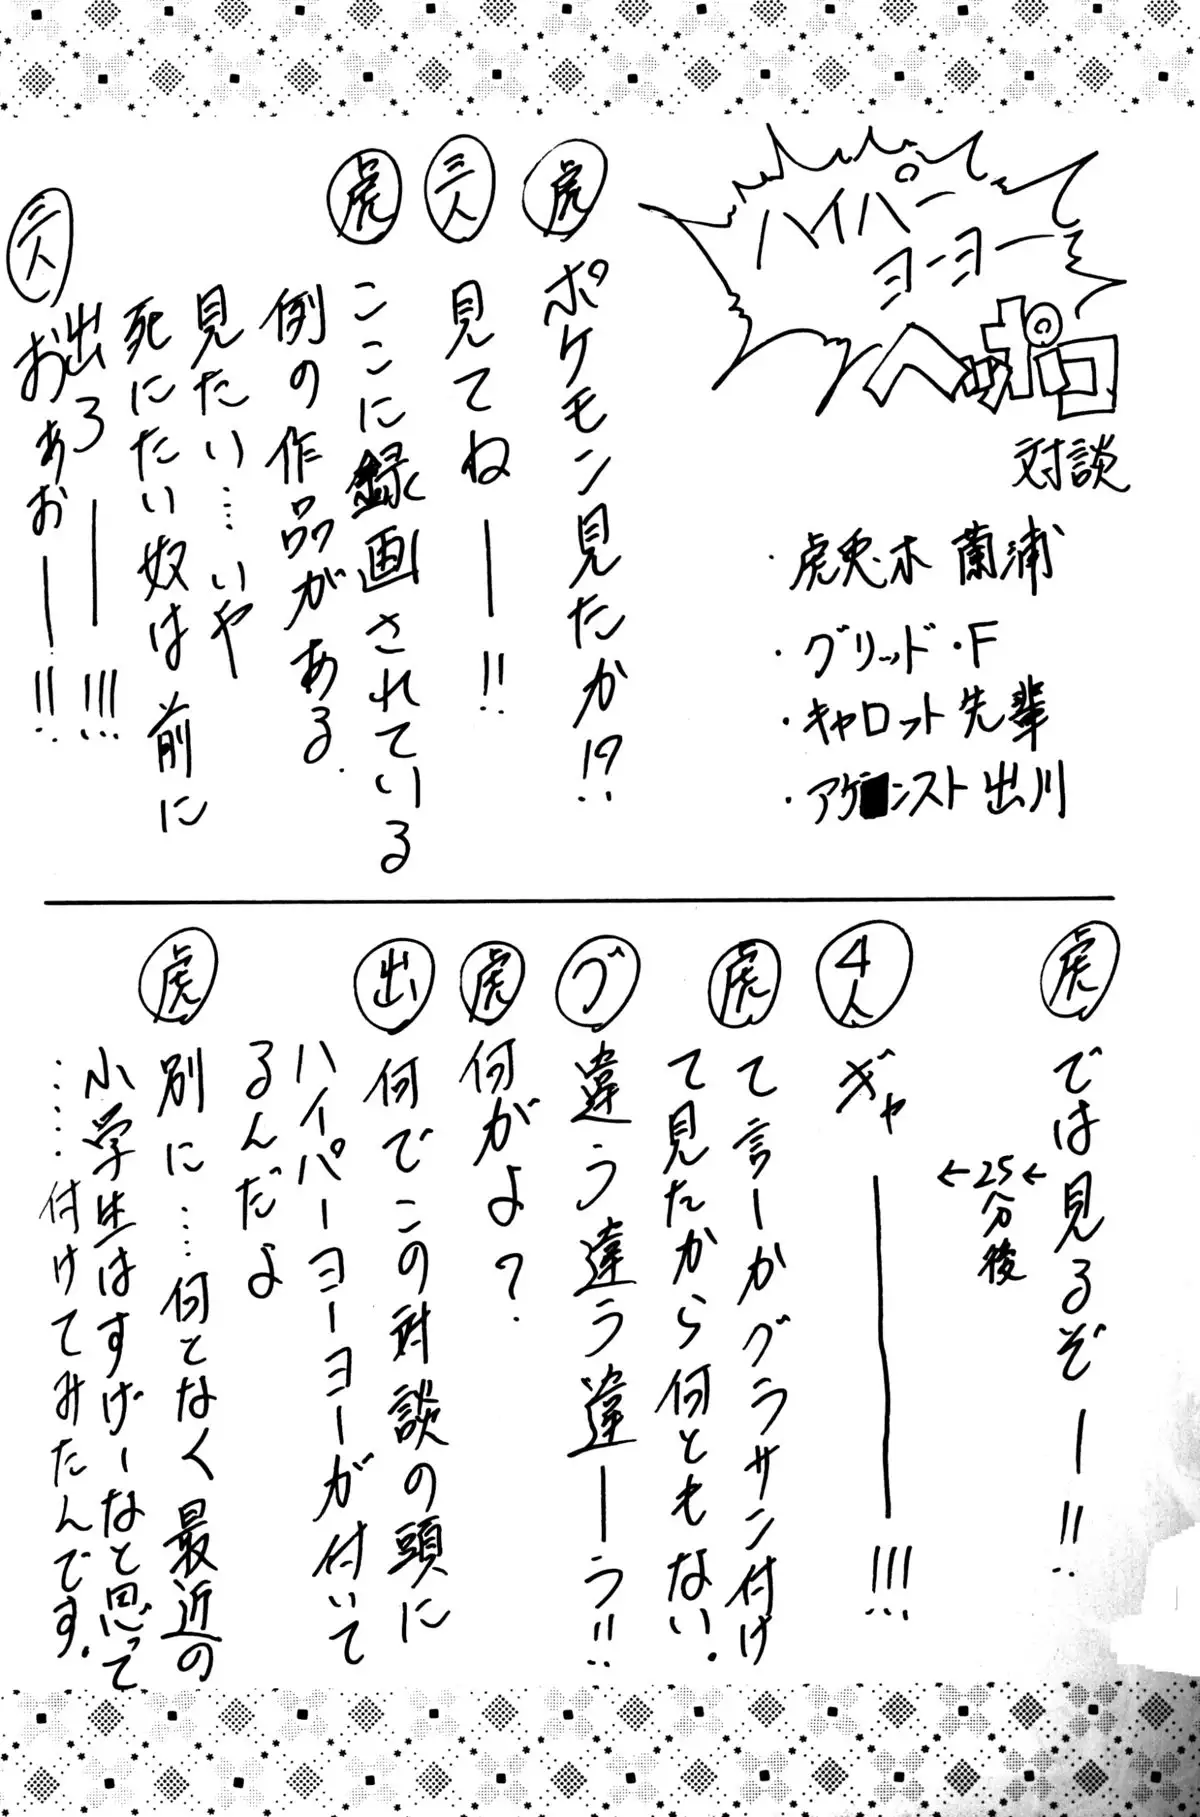 ハイパー
ヨーヨー
ヘッポコ
対談
・虎兎木 蘭浦
・グリッド・F
・キャロット先輩
・アゲ ンスト出川
虎 ポケモン見たか!?
三人 見てねーー!!
虎 ここに録画されている
例の作品がある.
見たい…いや
死にたい奴は前に
出ろーー!!!
三人 おぉおーー!!
虎 では見るぞー!!
←25分後←
4人 ギャーー!!!
虎 て言ーかグラサン付け
て見たから何ともない.
グ 違う違う違ーう!!
虎 何がよ?
出 何でこの対談の頭に
ハイパーヨーヨーが付いて
るんだよ
虎 別に…何となく最近の
小学生はすげーなと思って
……付けてみたんです.